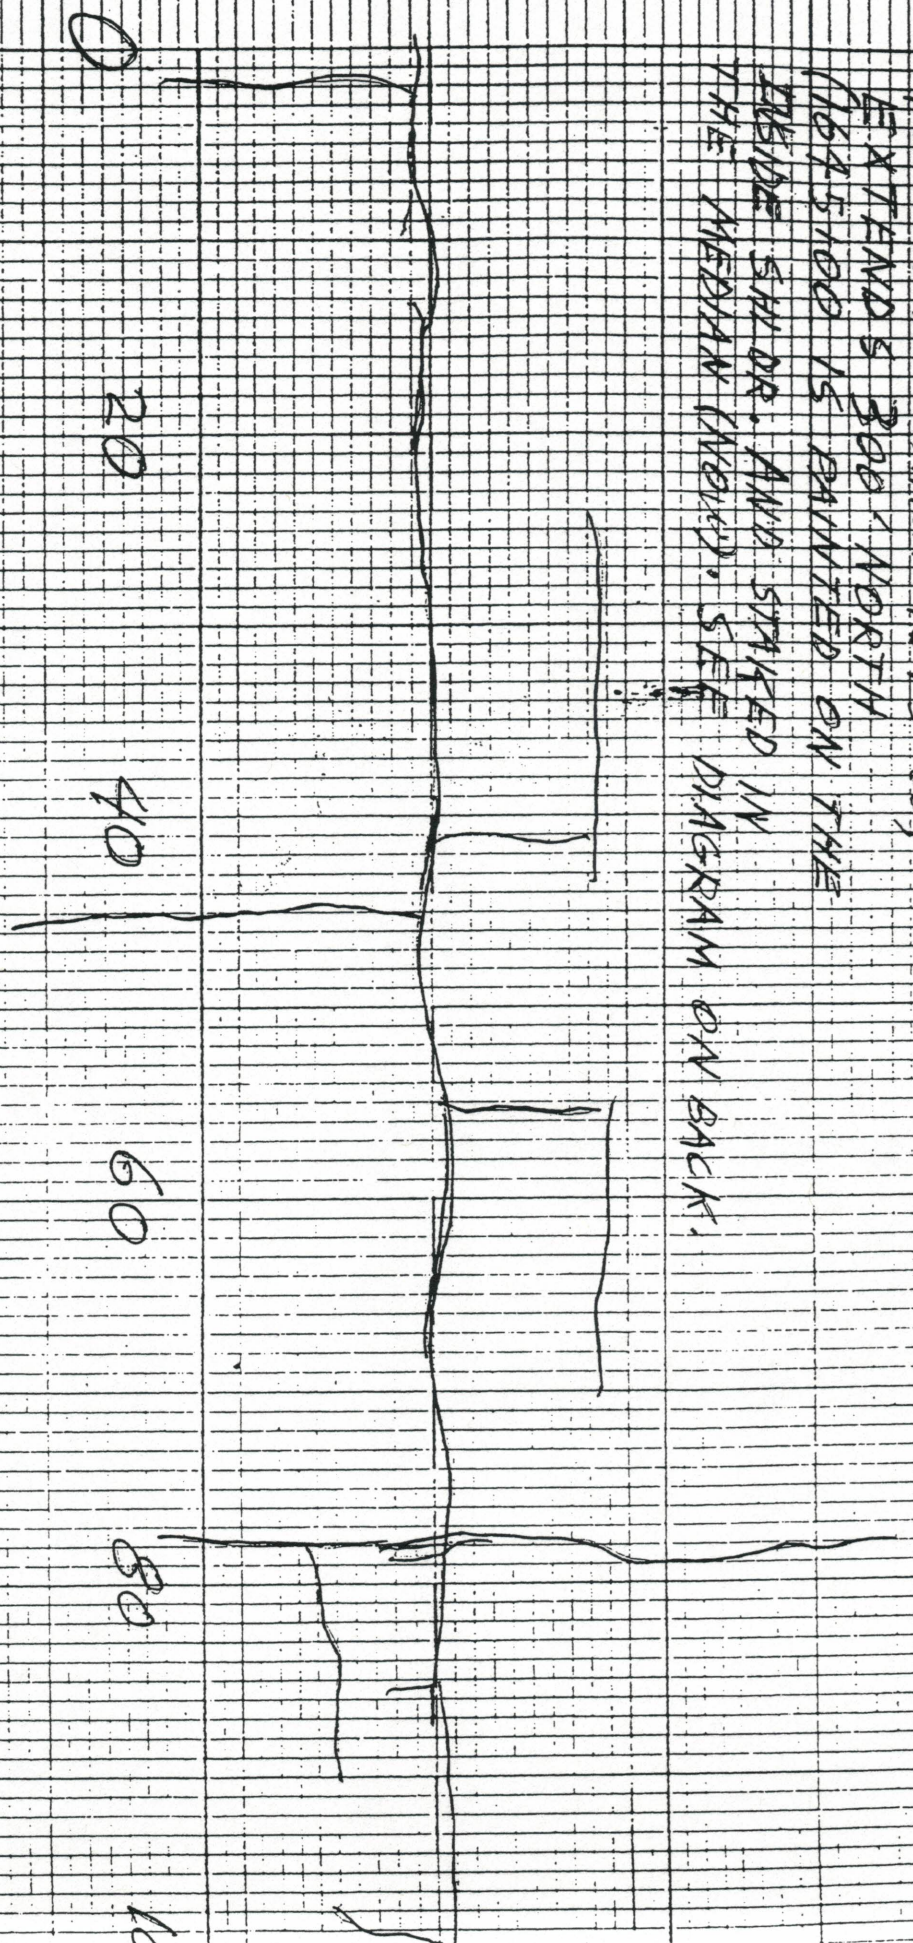 EXTENDS 300' NORTH
(1645+00 IS PAINTED ON THE
INSIDE SHLDR. AND STAKED IN
THE MEDIAN (NOW). SEE DIAGRAM ON BACK.
0 20 40 60 80